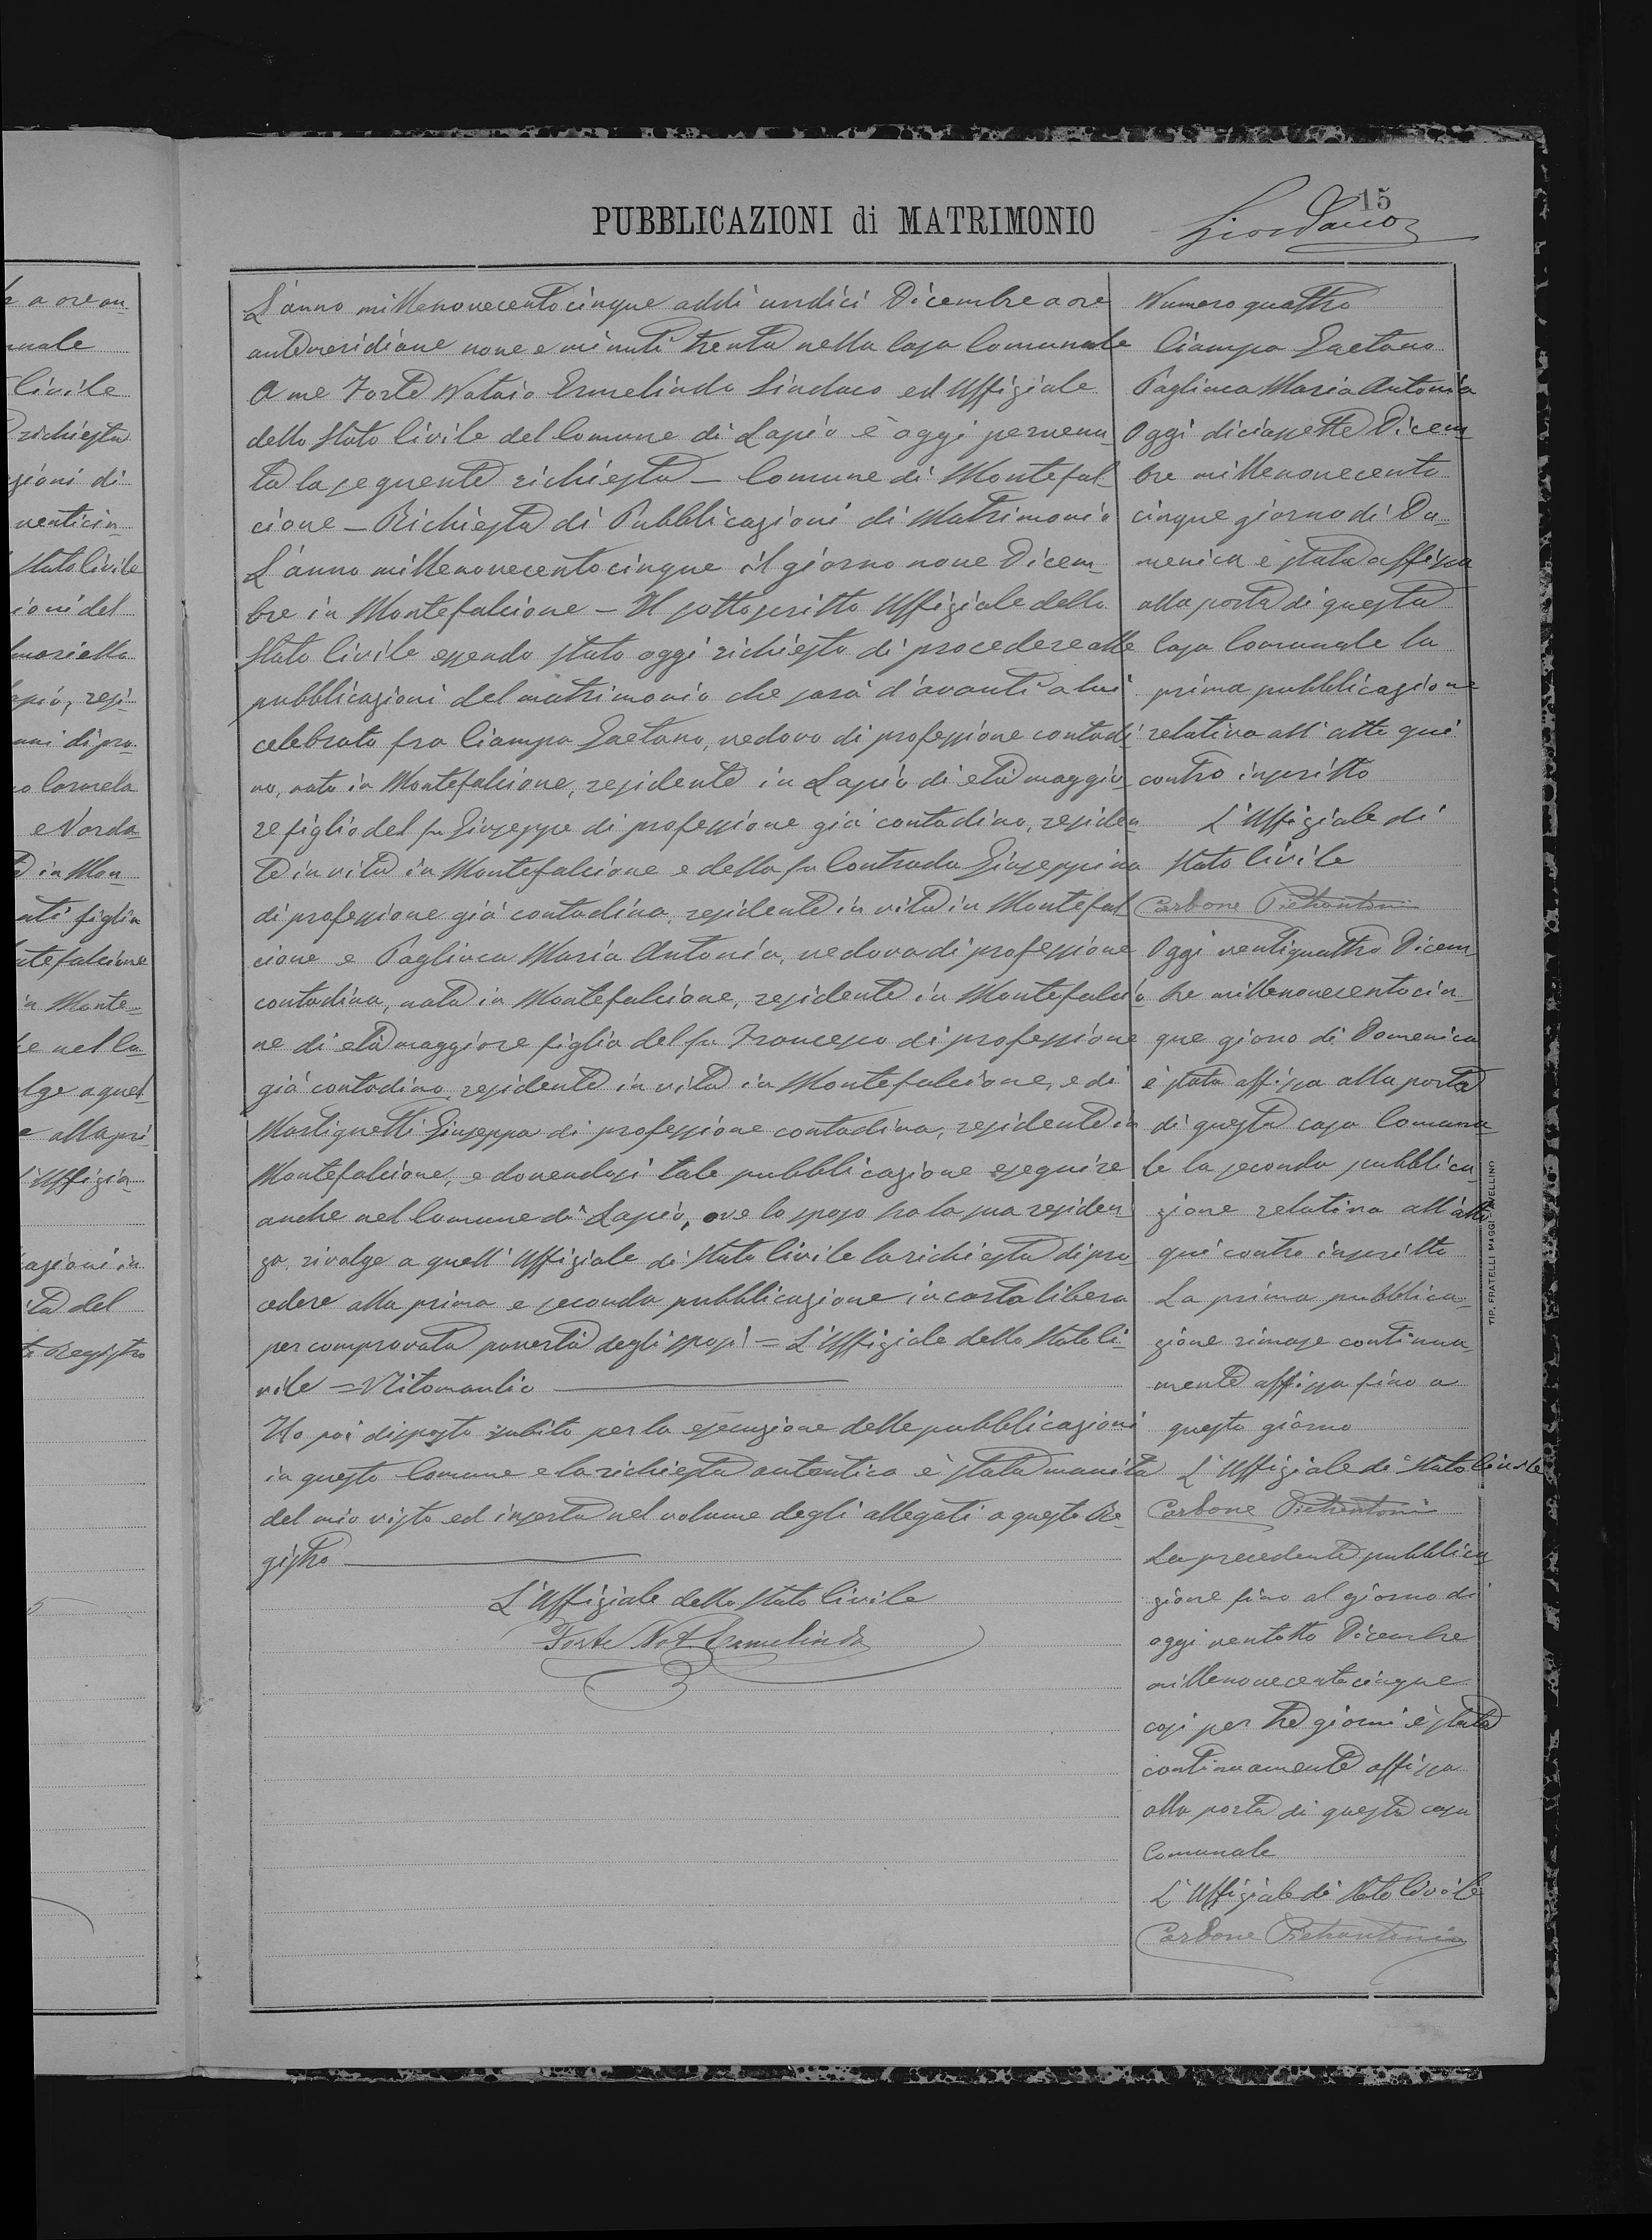 PUBBLICAZIONI di MATRIMONIO
15
Giordano
L'anno millenovecentocinque addì undici Dicembre a ore
antimeridiane nove e minuti trenta nella Casa Comunale
A me Forte Notaio Ermelindo Sindaco ed Uffiziale
dello Stato Civile del Comune di Lapio è oggi pervenu-
ta la seguente richiesta - Comune di Montefal
cione - Richiesta di Pubblicazioni di Matrimonio
L'anno millenovecentocinque il giorno nove Dicem-
bre in Montefalcione - Il sottoscritto Uffiziale dello
Stato Civile essendo stato oggi richiesto di procedere alle
pubblicazioni del matrimonio che sarà d'avanti a lui
celebrato fra Ciampo Gaetano, vedovo di professione contadi
no, nato in Montefalcione, residente in Lapio di età maggio
re figlio del fu Giuseppe di professione già contadino, residen
te in vita in Montefalcione e della fu Contrada Giuseppina
di professione già contadina, residente in vita in Montefal
cione e Pagliuca Maria Antonia, vedova di professione
contadina, nata in Montefalcione, residente in Montefalcio
ne di età maggiore figlia del fu Francesco di professione
già contadino, residente in vita in Montefalcione, e di
Martignetti Giuseppa di professione contadina, residente in
Montefalcione, e dovendosi tale pubblicazione eseguire
anche nel Comune di Lapio, ove lo sposo ha la sua residen
za, rivolge a quell'Uffiziale di Stato Civile la richiesta di pro
cedere alla prima e seconda pubblicazione in carta libera
per comprovata povertà degli sposi = L'Uffiziale dello Stato Ci-
vile = Vitomanlio
Ho poi disposto subito per la esecuzione delle pubblicazioni
in questo Comune e la richiesta autentica è stata munita
del mio visto ed inserta nel volume degli allegati a questo Re-
gistro
L'Uffiziale dello Stato Civile
Forte Not Ermelindo
Numero quattro
Ciampo Gaetano
Pagliuca Maria Antonia
Oggi diciassette Dicem-
bre millenovecento
cinque giorno di Do-
menica è stata affissa
alla porta di questa
Casa Comunale la
prima pubblicazione
relativa all'atto qui
contro inscritto
L'Uffiziale di
Stato Civile
Carbone Pietrantonio
Oggi ventiquattro Dicem
bre millenovecentocin-
que giorno di Domenica
è stata affissa alla porta
di questa casa Comuna-
le la seconda pubblica
zione relativa all'atto
qui contro inscritto
La prima pubblica-
zione rimase continua-
mente affissa fino a
questo giorno
L'Uffiziale di Stato Civile
Carbone Pietrantonio
La precedente pubblica
zione fino al giorno di
oggi ventotto Dicembre
millenovecentocinque
così per tre giorni è stata
continuamente affissa
alla porta di questa casa
Comunale
L'Uffiziale di Stato Civile
Carbone Pietrantonio
TIP. FRATELLI MAGGI - AVELLINO